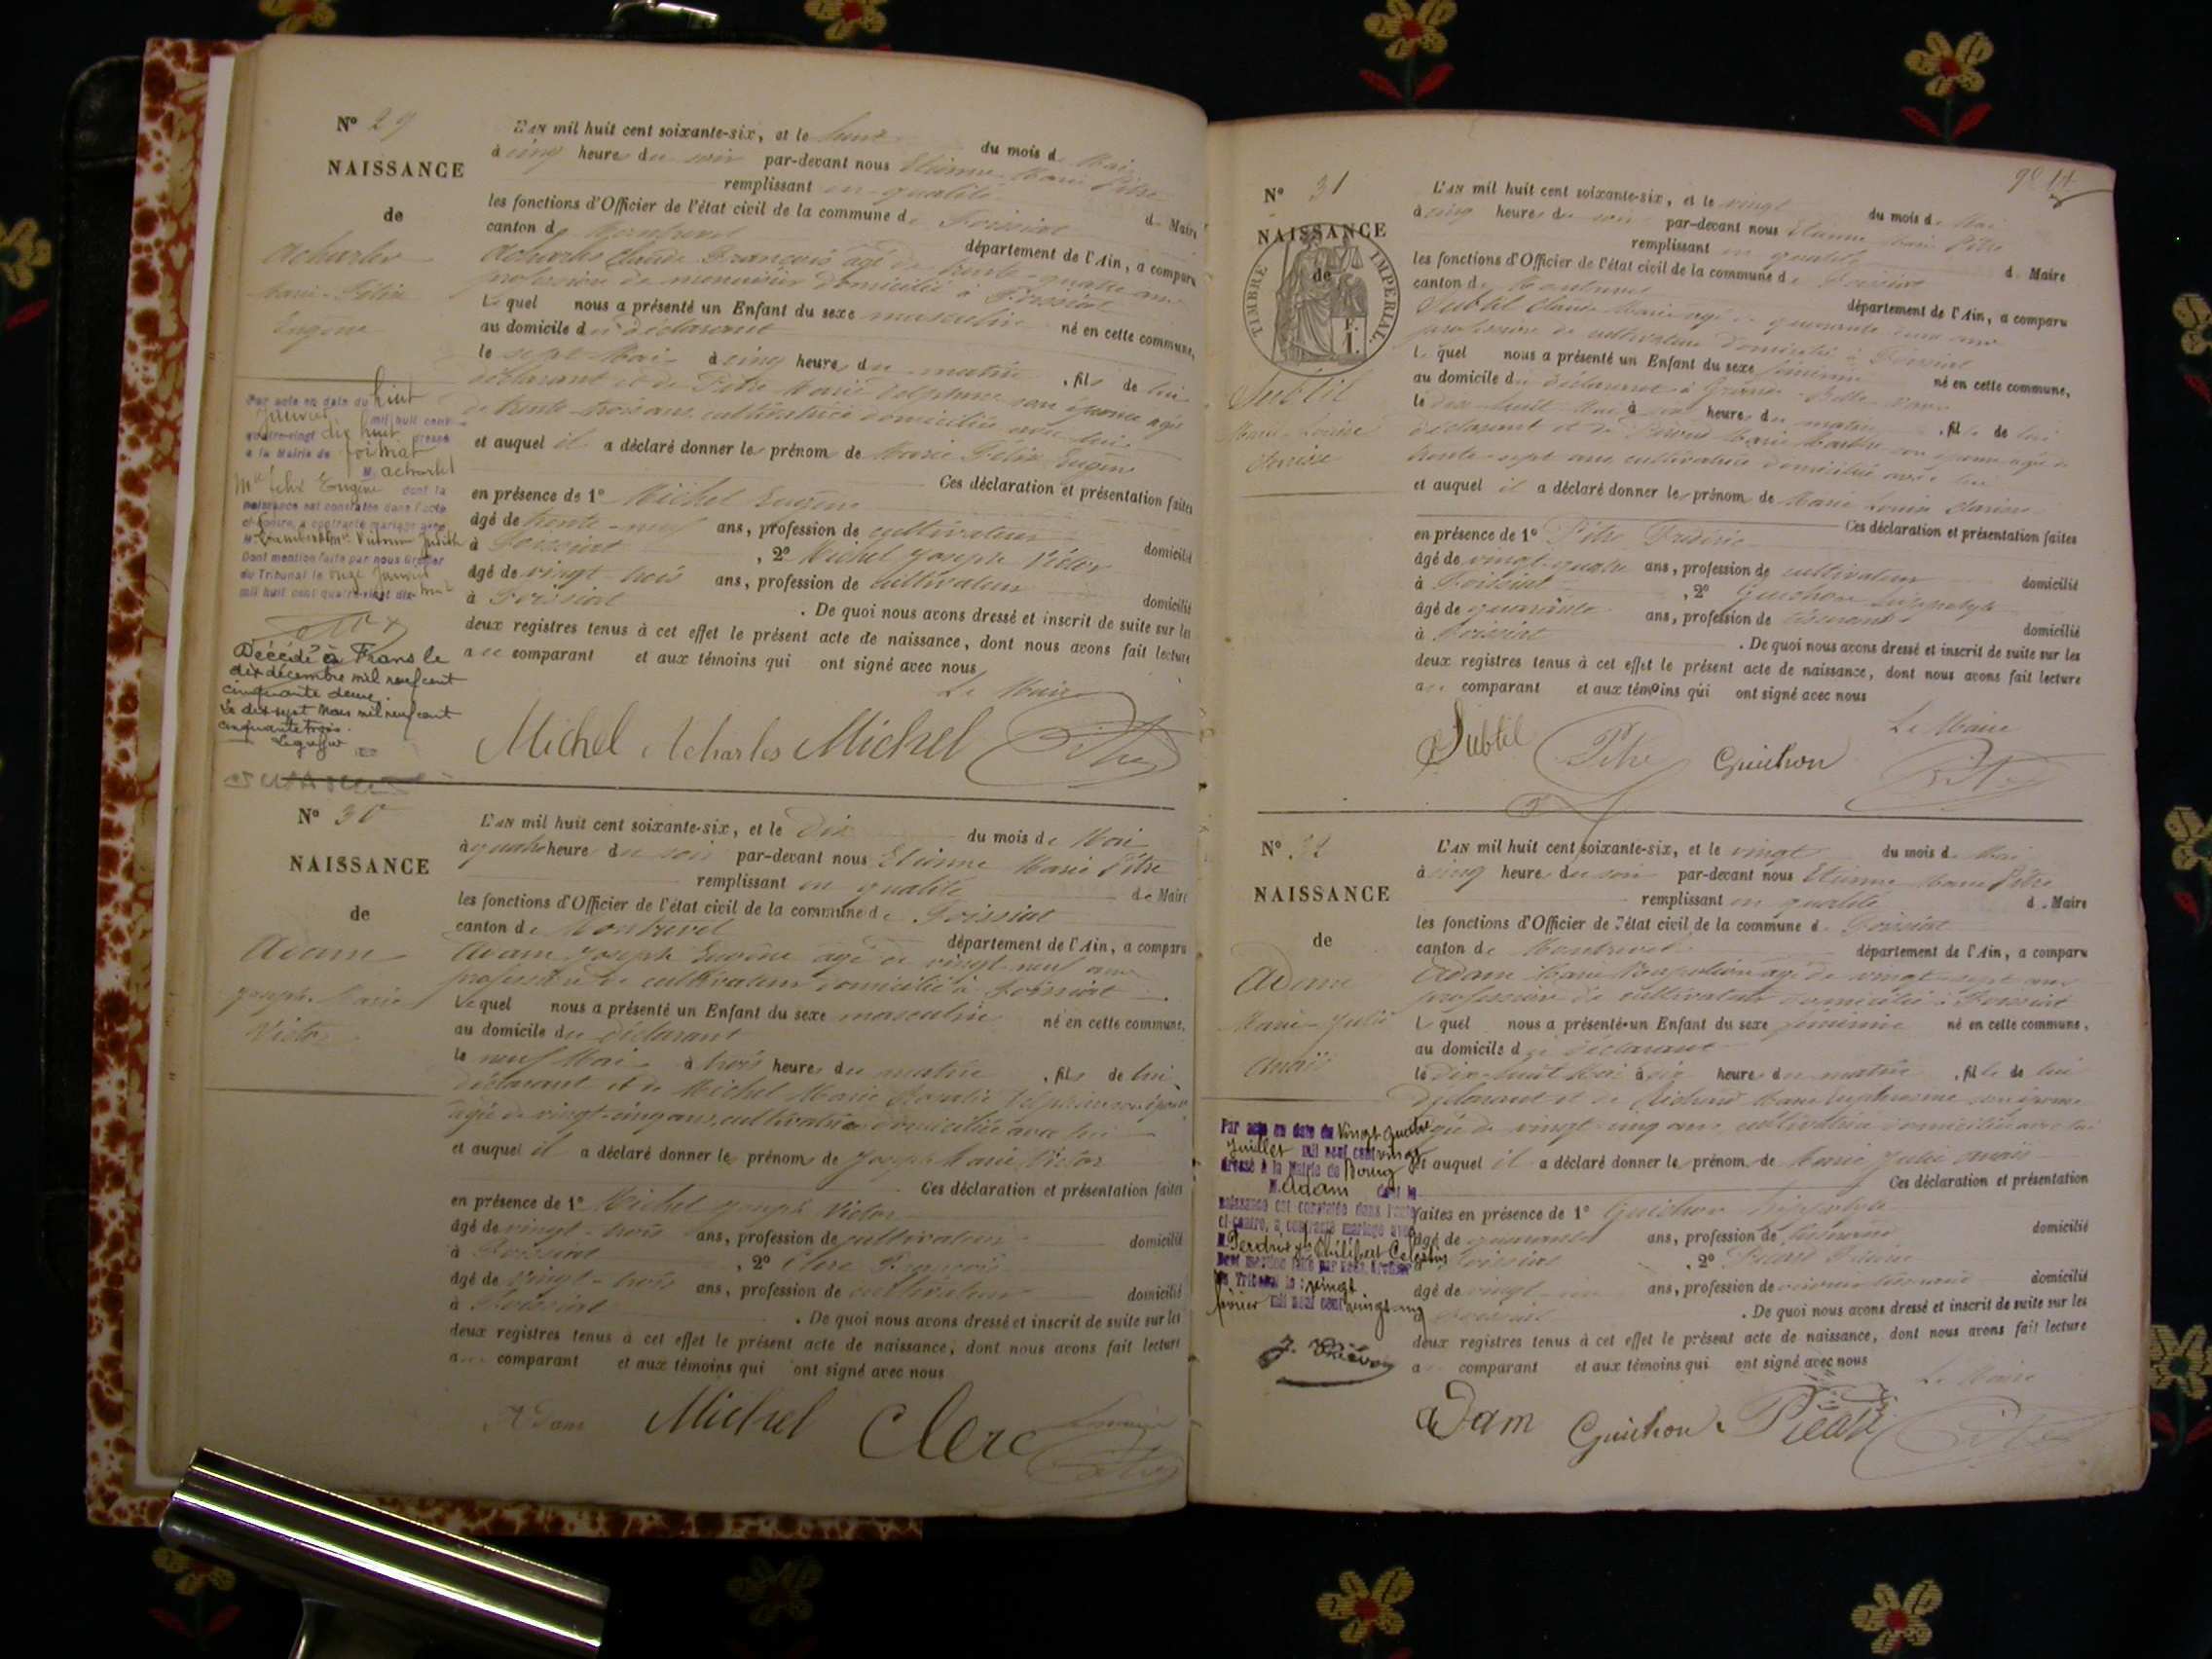 Nº 29
NAISSANCE
de
Acharles
Marie-Félix
Eugène
L'AN mil huit cent soixante-six, et le huit du mois de Mai
à cinq heures du soir par-devant nous Etienne Marie Pitre
remplissant en qualité de Maire
les fonctions d'Officier de l'état civil de la commune de Foissiat
canton de Montrevel département de l'Ain, a comparu
Acharles Claude François âgé de trente-quatre ans
profession de menuisier domicilié à Foissiat
Lequel nous a présenté un Enfant du sexe masculin né en cette commune,
au domicile du déclarant
le sept Mai à cinq heures du matin, fils de lui
déclarant et de Pitre Marie Delphine son épouse âgée
de trente-trois ans, cultivatrice domiciliée avec lui
et auquel il a déclaré donner les prénom de Marie Félix Eugène
Ces déclaration et présentation faites
en présence de 1º Michel Eugène
âgé de trente-neuf ans, profession de cultivateur domicilié
à Foissiat, 2º Michel Joseph Victor
âgé de vingt-trois ans, profession de cultivateur domicilié
à Foissiat. De quoi nous avons dressé et inscrit de suite sur les
deux registres tenus à cet effet le présent acte de naissance, dont nous avons fait lecture
au comparant et aux témoins qui ont signé avec nous
Le Maire
Michel Acharles Michel Pitre
Par acte en date du huit
Janvier mil huit cent
quatre-vingt dix huit dressé
à la Mairie de
M. Acharles
Mie Felix Eugène dont la
naissance est constatée dans l'acte
ci-contre, a contracté mariage avec
Judith
Dont mention faite par nous Greffier
du Tribunal le onze Janvier
mil huit cent quatre-vingt dix huit
Décédé à Frans le
dix décembre mil neuf cent
cinquante deux.
Le dix-sept Mars mil neuf cent
cinquante trois.
Nº 30
NAISSANCE
de
Adam
Joseph Marie
Victor
L'AN mil huit cent soixante-six, et le Dix du mois de Mai
à quatre heure du soir par-devant nous Etienne Marie Pitre
remplissant en qualité de Maire
les fonctions d'Officier de l'état civil de la commune de Foissiat
canton de Montrevel
département de l'Ain, a comparu
Adam Joseph Eugène âgé de vingt-neuf ans
profession de cultivateur domicilié à Foissiat
Lequel nous a présenté un Enfant du sexe masculin né en cette commune,
au domicile du déclarant
le neuf Mai à trois heures du matin, fils de lui
déclarant et de Michel Marie Rosalie Delphine son épouse
âgée de vingt-cinq ans, cultivatrice domiciliée avec lui
et auquel il a déclaré donner les prénom de Joseph Marie Victor
Ces déclaration et présentation faites
en présence de 1º Michel Joseph Victor
âgé de vingt-trois ans, profession de cultivateur domicilié
à Foissiat, 2º Clerc François
âgé de vingt-trois ans, profession de cultivateur domicilié
à Foissiat. De quoi nous avons dressé et inscrit de suite sur les
deux registres tenus à cet effet le présent acte de naissance, dont nous avons fait lecture
au comparant et aux témoins qui ont signé avec nous
Adam Michel Clerc Le Maire
Pitre
Nº 31
NAISSANCE
de
TIMBRE IMPERIAL
Subtil
Marie-Louise
Clarisse
L'AN mil huit cent soixante-six, et le vingt du mois de Mai
à cinq heures du soir par-devant nous Etienne Marie Pitre
remplissant en qualité de Maire
les fonctions d'Officier de l'état civil de la commune de Foissiat
canton de Montrevel
département de l'Ain, a comparu
Subtil Claude Marie âgé de quarante deux ans
profession de cultivateur domicilié à Foissiat
Lequel nous a présenté un Enfant du sexe féminin né en cette commune,
au domicile du déclarant à
le dix-huit Mai à six heures du matin, fille de lui
déclarant et de Marie Marthe son épouse âgée de
trente-sept ans cultivatrice domiciliée avec lui
et auquel il a déclaré donner les prénom de Marie Louise Clarisse
Ces déclaration et présentation faites
en présence de 1º Pitre Frédéric
âgé de vingt-quatre ans, profession de cultivateur domicilié
à Foissiat, 2º Guichon Hippolyte
âgé de quarante ans, profession de tisserand domicilié
à Foissiat. De quoi nous avons dressé et inscrit de suite sur les
deux registres tenus à cet effet le présent acte de naissance, dont nous avons fait lecture
au comparant et aux témoins qui ont signé avec nous
Le Maire
Subtil Pitre Guichon Pitre
Nº 32
NAISSANCE
de
Adam
Marie-Julie
Anaïs
L'AN mil huit cent soixante-six, et le vingt du mois de Mai
à cinq heures du soir par-devant nous Etienne Marie Pitre
remplissant en qualité de Maire
les fonctions d'Officier de l'état civil de la commune de Foissiat
canton de Montrevel département de l'Ain, a comparu
Adam Marie âgé de vingt-sept ans
profession de cultivateur domicilié à Foissiat
Lequel nous a présenté un Enfant du sexe féminin né en cette commune,
au domicile du déclarant
le dix-huit Mai à six heures du matin, fille de lui
déclarant et de Marie son épouse
âgée de vingt-cinq ans, cultivatrice domiciliée avec lui
et auquel il a déclaré donner les prénom de Marie Julie Anaïs
Ces déclaration et présentation
faites en présence de 1º Guichon Hippolyte
âgé de quarante ans, profession de tisserand domicilié
à Foissiat, 2º
âgé de vingt ans, profession de domicilié
à Foissiat. De quoi nous avons dressé et inscrit de suite sur les
deux registres tenus à cet effet le présent acte de naissance, dont nous avons fait lecture
au comparant et aux témoins qui ont signé avec nous
Le Maire
Adam Guichon
Pitre
Par acte en date du vingt quatre
Juillet mil neuf cent vingt
dressé à la Mairie de Bourg
M. Adam dont la
naissance est constatée dans l'acte
ci-contre, a contracté mariage avec
M. Philibert Celestin
Dont mention faite par nous Greffier
du Tribunal le vingt
mil neuf cent vingt